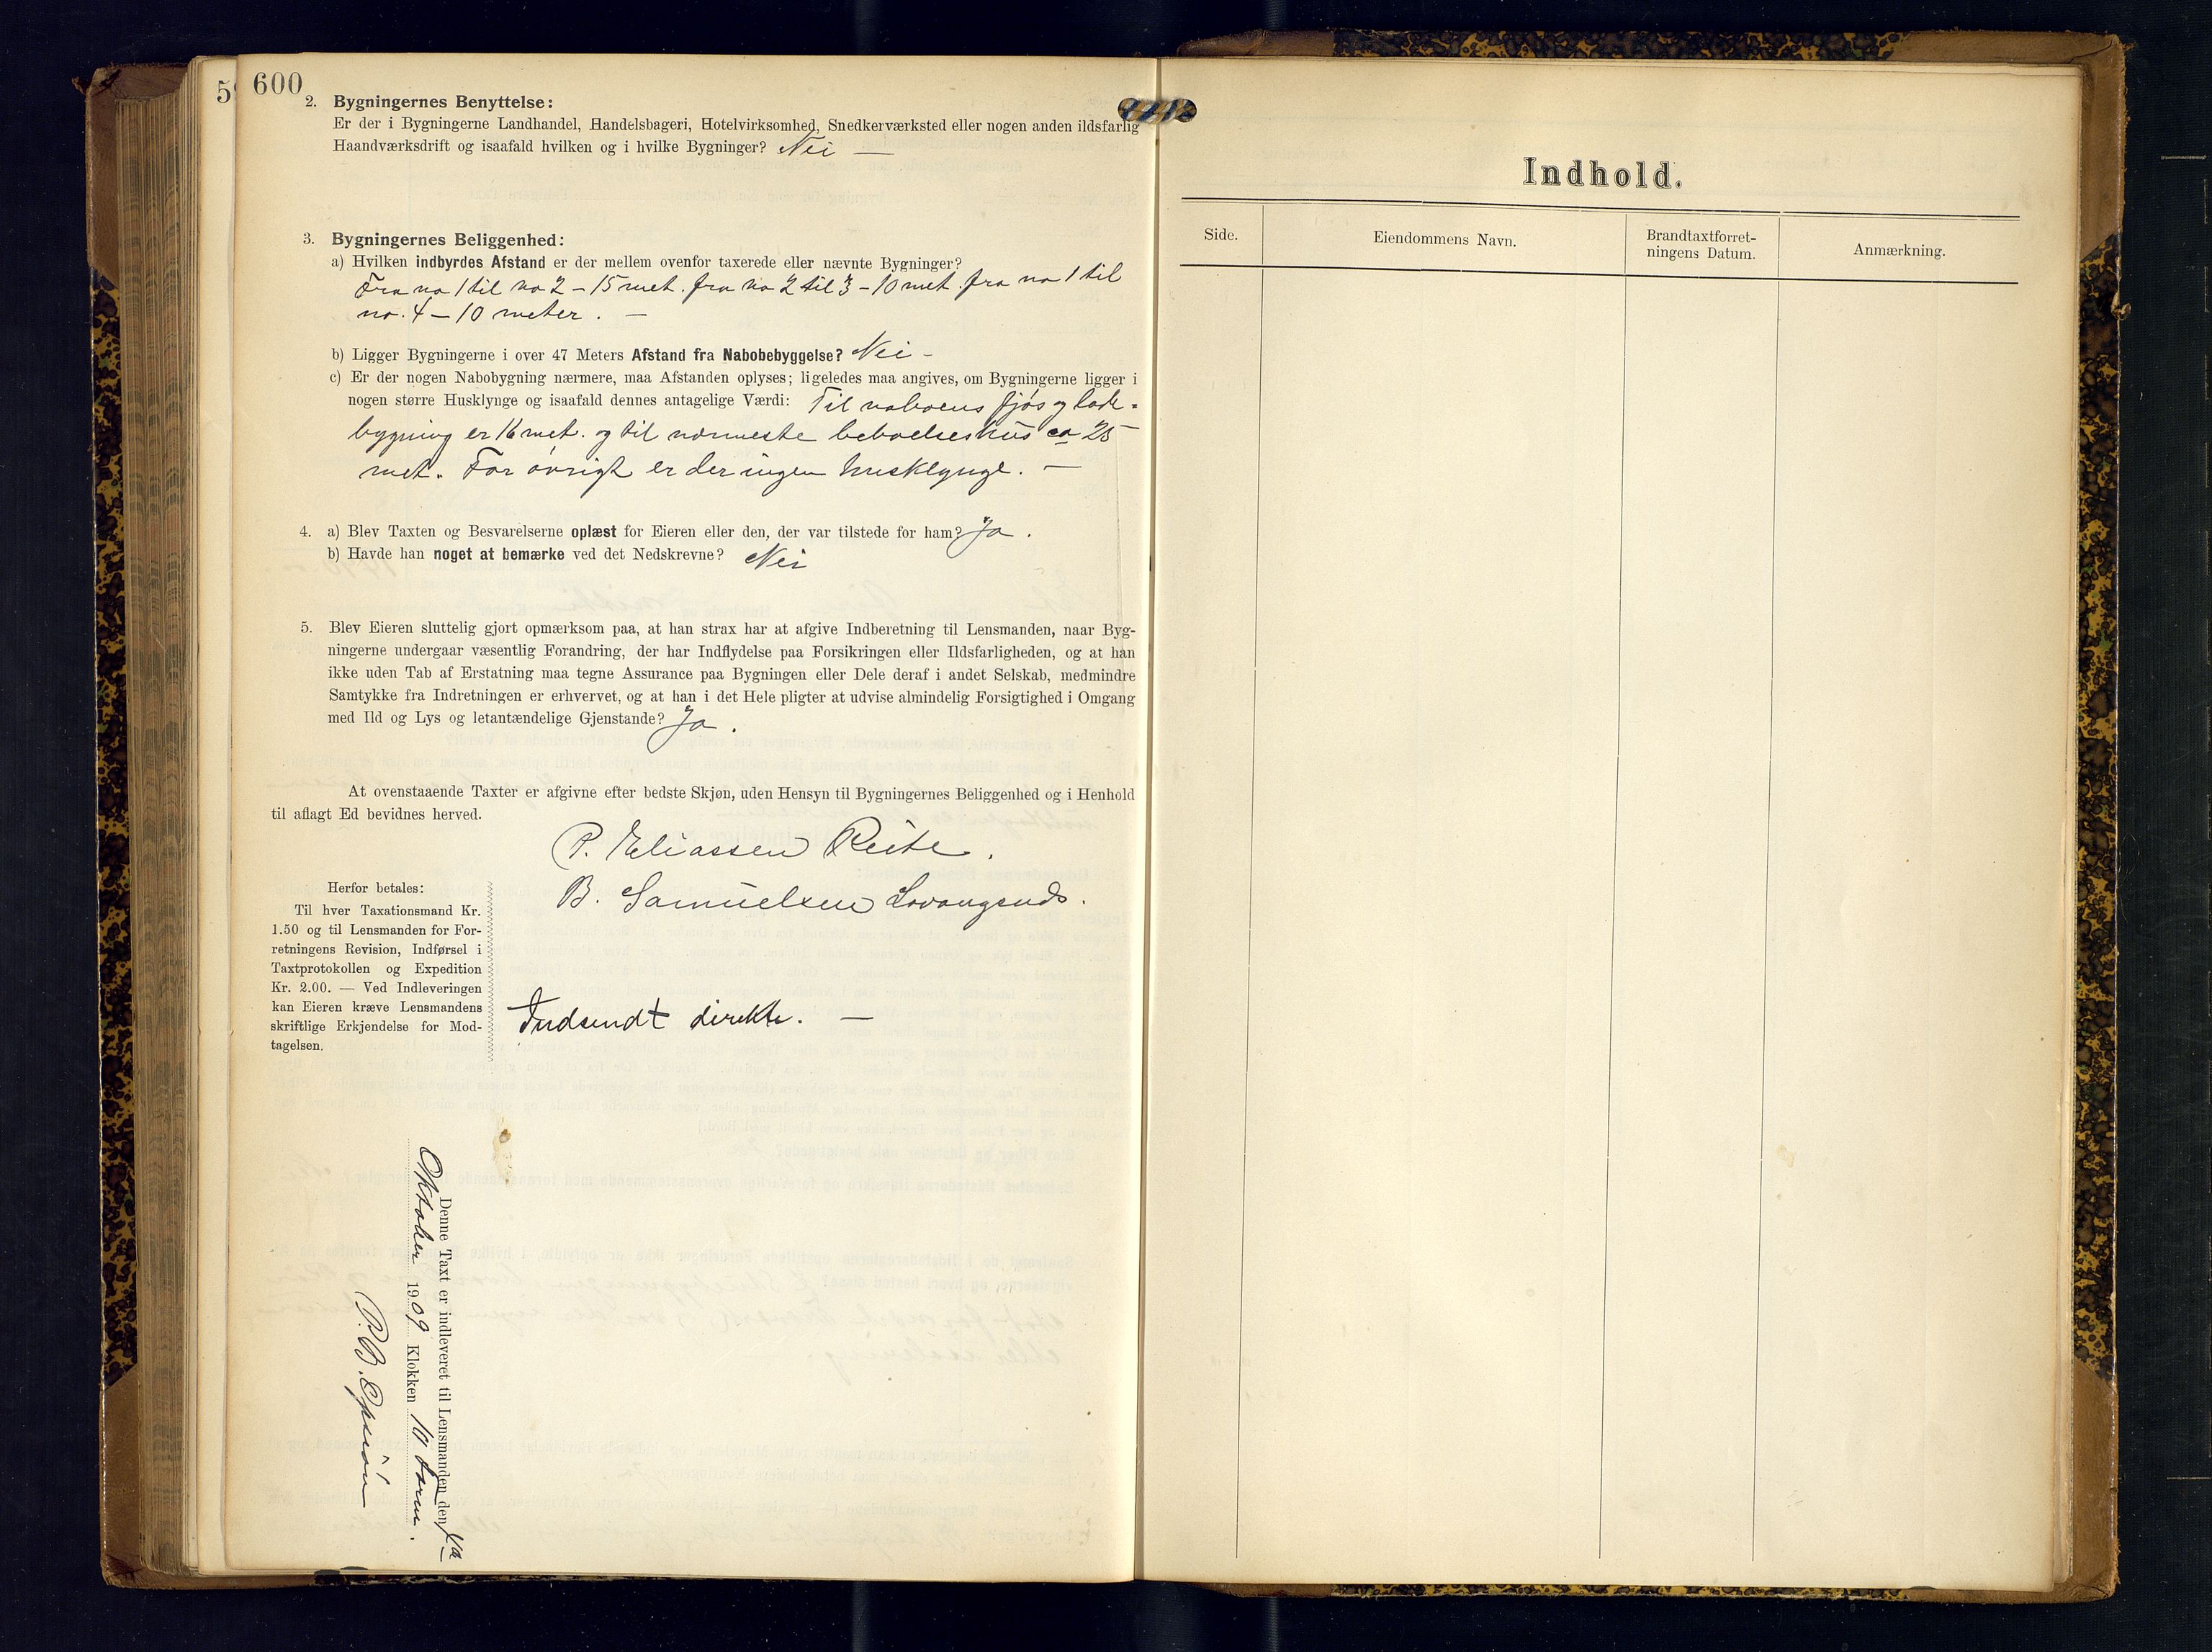 600
2. Bygningernes Benyttelse:
Er der i Bygningerne Landhandel, Handelsbageri, Hotelvirksomhed, Snedkerværksted eller nogen anden ildsfarlig
Haandværksdrift og isaafald hvilken og i hvilke Bygninger? Nei —
3. Bygningernes Beliggenhed:
a) Hvilken indbyrdes Afstand er der mellem ovenfor taxerede eller nævnte Bygninger?
Fra no 1 til no 2 – 15 met. fra no 2 til 3 – 10 met. fra no 1 til
no. 4 – 10 meter. —
b) Ligger Bygningerne i over 47 Meters Afstand fra Nabobebyggelse? Nei –
c) Er der nogen Nabobygning nærmere, maa Afstanden oplyses; ligeledes maa angives, om Bygningerne ligger i
nogen større Husklynge og isaafald dennes antagelige Værdi: Til naboens fjós og lade-
bygning er 16 met. og til nærmeste beboelseshus ca 25
met. For óvrigt er der ingen huskLynge. —
4. a) Blev Taxten og Besvarelserne oplæst for Eieren eller den, der var tilstede for ham? Ja.
b) Havde han noget at bemærke ved det Nedskrevne? Nei
5. Blev Eieren sluttelig gjort opmærksom paa, at han strax har at afgive Indberetning til Lensmanden, naar Byg-
ningerne undergaar væsentlig Forandring, der har Indflydelse paa Forsikringen eller Ildsfarligheden, og at han
ikke uden Tab af Erstatning maa tegne Assurance paa Bygningen eller Dele deraf i andet Selskab, medmindre
Samtykke fra Indretningen er erhvervet, og at han i det Hele pligter at udvise almindelig Forsigtighed i Omgang
med Ild og Lys og letantændelige Gjenstande? Ja.
At ovenstaaende Taxter er afgivne efter bedste Skjøn, uden Hensyn til Bygningernes Beliggenhed og i Henhold
til aflagt Ed bevidnes herved.
P. Eliassen Reite.
B. Samuelsen
Herfor betales:
Til hver Taxationsmand Kr.
1.50 og til Lensmanden for For-
retningens Revision, Indførsel i
Taxtprotokollen og Expedition
Kr. 2.00. — Ved Indleveringen
kan Eieren kræve Lensmandens
skriftlige Erkjendelse for Mod-
tagelsen.
Indsendt direkte. —
Denne Taxt er indleveret til Lensmanden den
Oktober 1909 Klokken 10 Form.
Indhold.
Side.
Eiendommens Navn.
Brandtaxtforret-
ningens Datum.
Anmærkning.